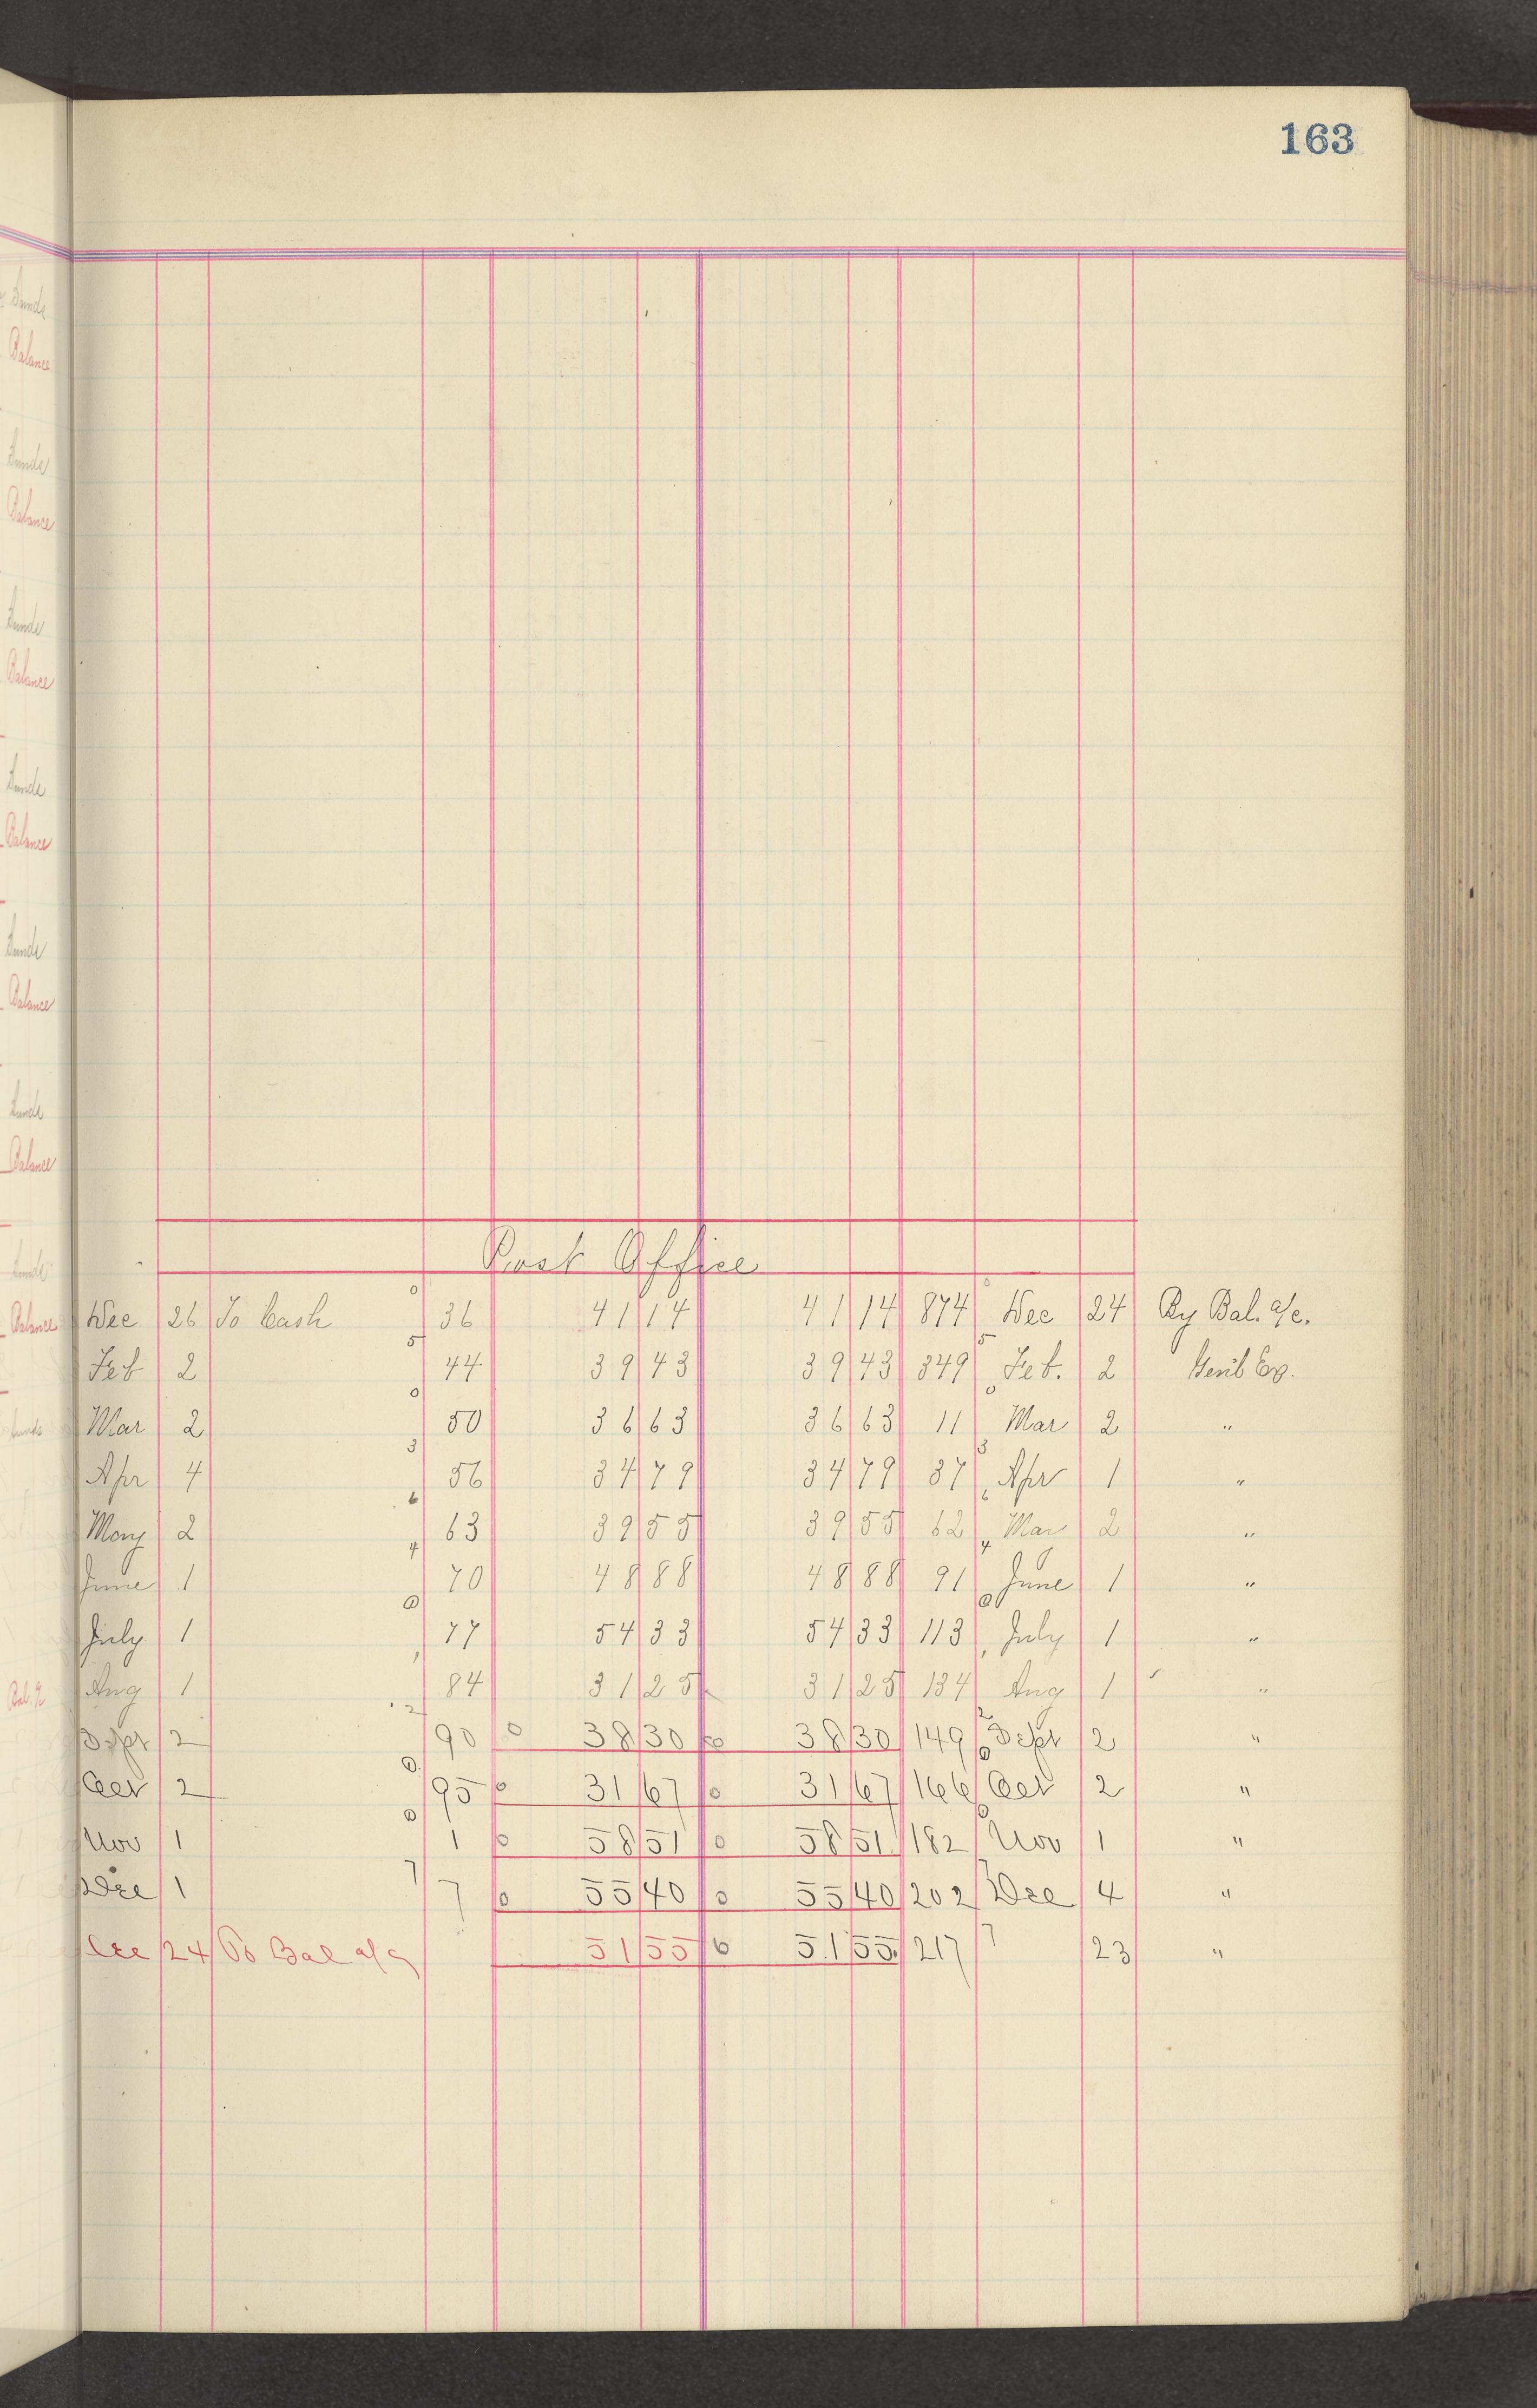 163
Post Office
Dec 26 To Cash 36 41 14 41 14 874 Dec 24 By Bal. a/c.
Feb 2 44 39 43 39 43 849 Feb. 2 Genl Ex.
Mar 2 50 36 63 36 63 11 Mar 2 "
Apr 4 56 34 79 34 79 37 Apr 1 "
May 2 63 39 55 39 55 62 Mar 2 "
June 1 70 48 88 48 88 91 June 1 "
July 1 77 54 33 54 33 113 July 1 "
Aug 1 84 31 25 31 25 134 Aug 1 "
Sept 2 90 38 30 38 30 149 Sept 2 "
Oct 2 95 31 67 31 67 166 Oct 2 "
Nov 1 1 58 51 58 51 182 Nov 1 "
Dec 1 7 55 40 55 40 202 Dec 4 "
Dec 24 To Bal a/c 51 55 51 55 217 23 "